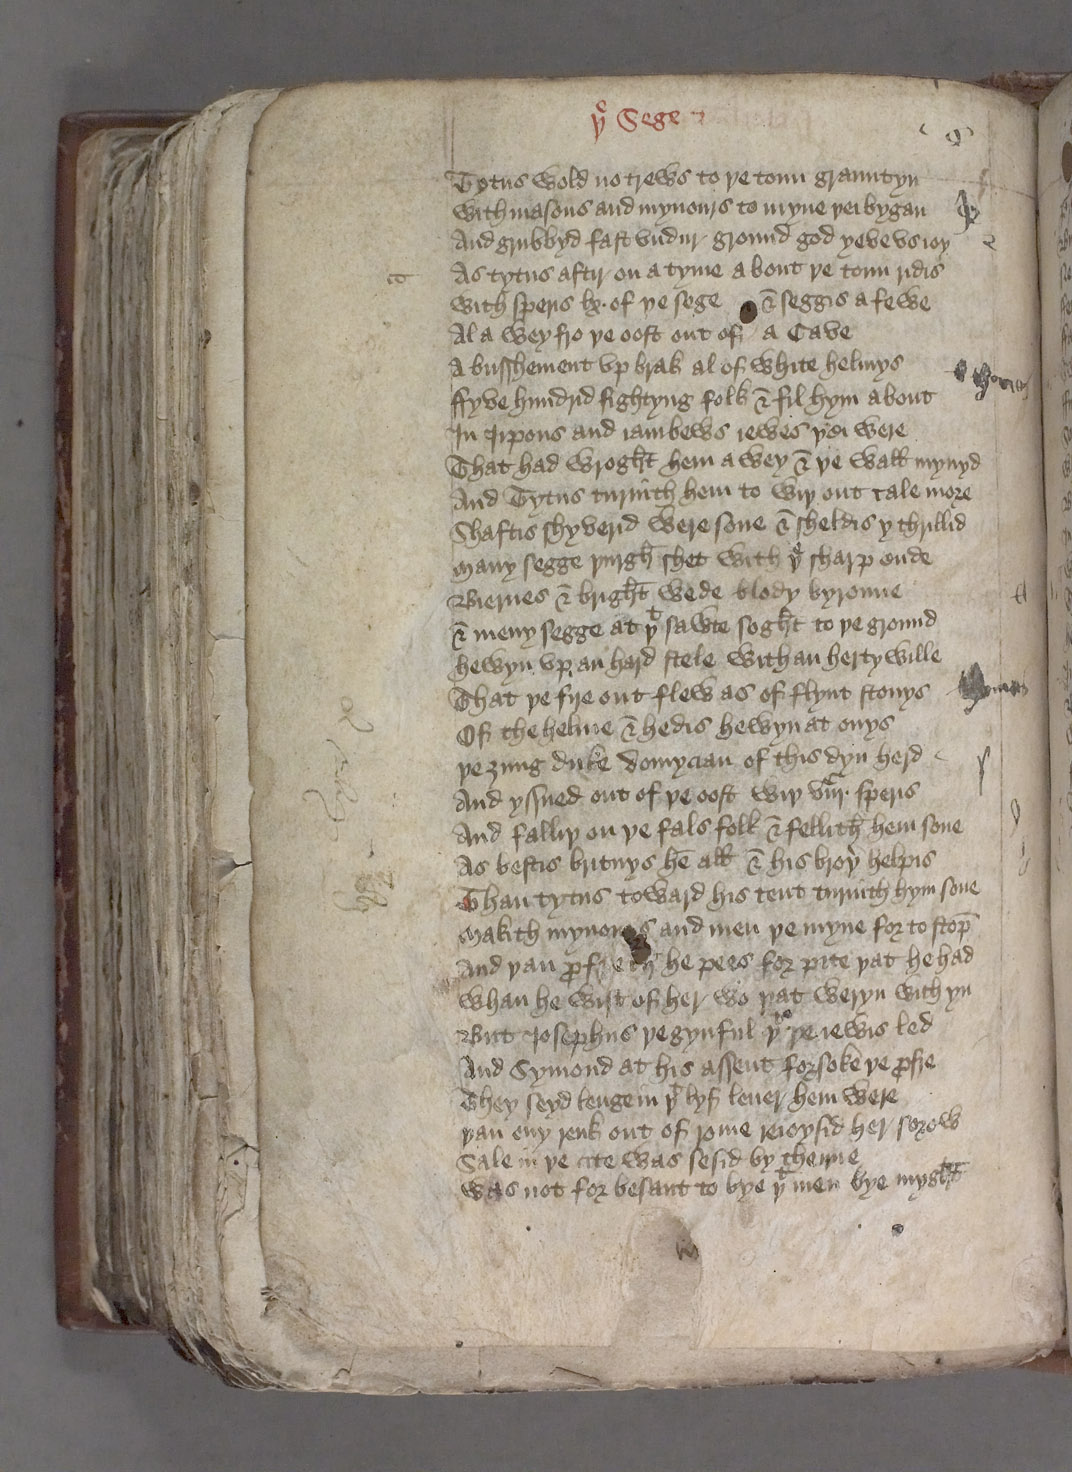 yͤ Sege
Tytus wold no trews to ye toun grauntyn
With masons and mynours to myne yei bygan
And grubbyd fast vndur ground god yeve vs ioy
As tytus aftir on a tyme a bout ye toun ridis
With speris lx. of ye sege & seggis a fewe
Al a wey fro ye oost out of a Cave
A busshement vp brak al of white helmys
ffyve hundrid fightyng folk & fil hym about
In Jipons and iambews iewes yei were
That had wroght hem a wey & ye wall mynyd
And Tytus turnith hem to wiy out tale more
Shaftis shyverid were sone & scheldis y thrillid
Many segge yurgh schet with yͤ scharp onde
Biernes & bright wede blody byronne
& meny segge at yͭ sawte soght to ye ground
hewyn vp an hard stele with an herty wille
That ye fire out flew as of flynt stonys
Of the helme & hedis hewyn at onys
ye zung duke domycian of this dyn herd
And yssued out of ye oost wiy vᵐ. speris
And falliy on ye fals folk & fellith hem sone
As bestis britnys hē all & his broyͬ helpis
Than tytus toward his tent turnith hym sone
Makth mynours and men ye myne for to stop
And yan profreth he pees for pite yat he had
Whan he wist of her wo yat weryn with yn
But Josephus ye gynful yͭ ye iewis led
And Symond at his assent forsoke ye profre
They seyd lenge in yͭ lyf lever hem were
yan eny renk out of rome reioysid her sorow
Sale in ye cite was sesid by thenne
Was not for besant to bye yͭ men bye myght